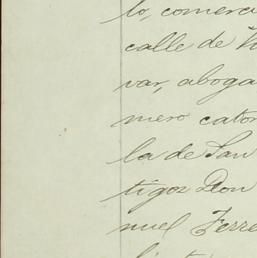 to, comerci
calle de
var, aboga
mero cator
la de San
tigos Don
nuel Ferre